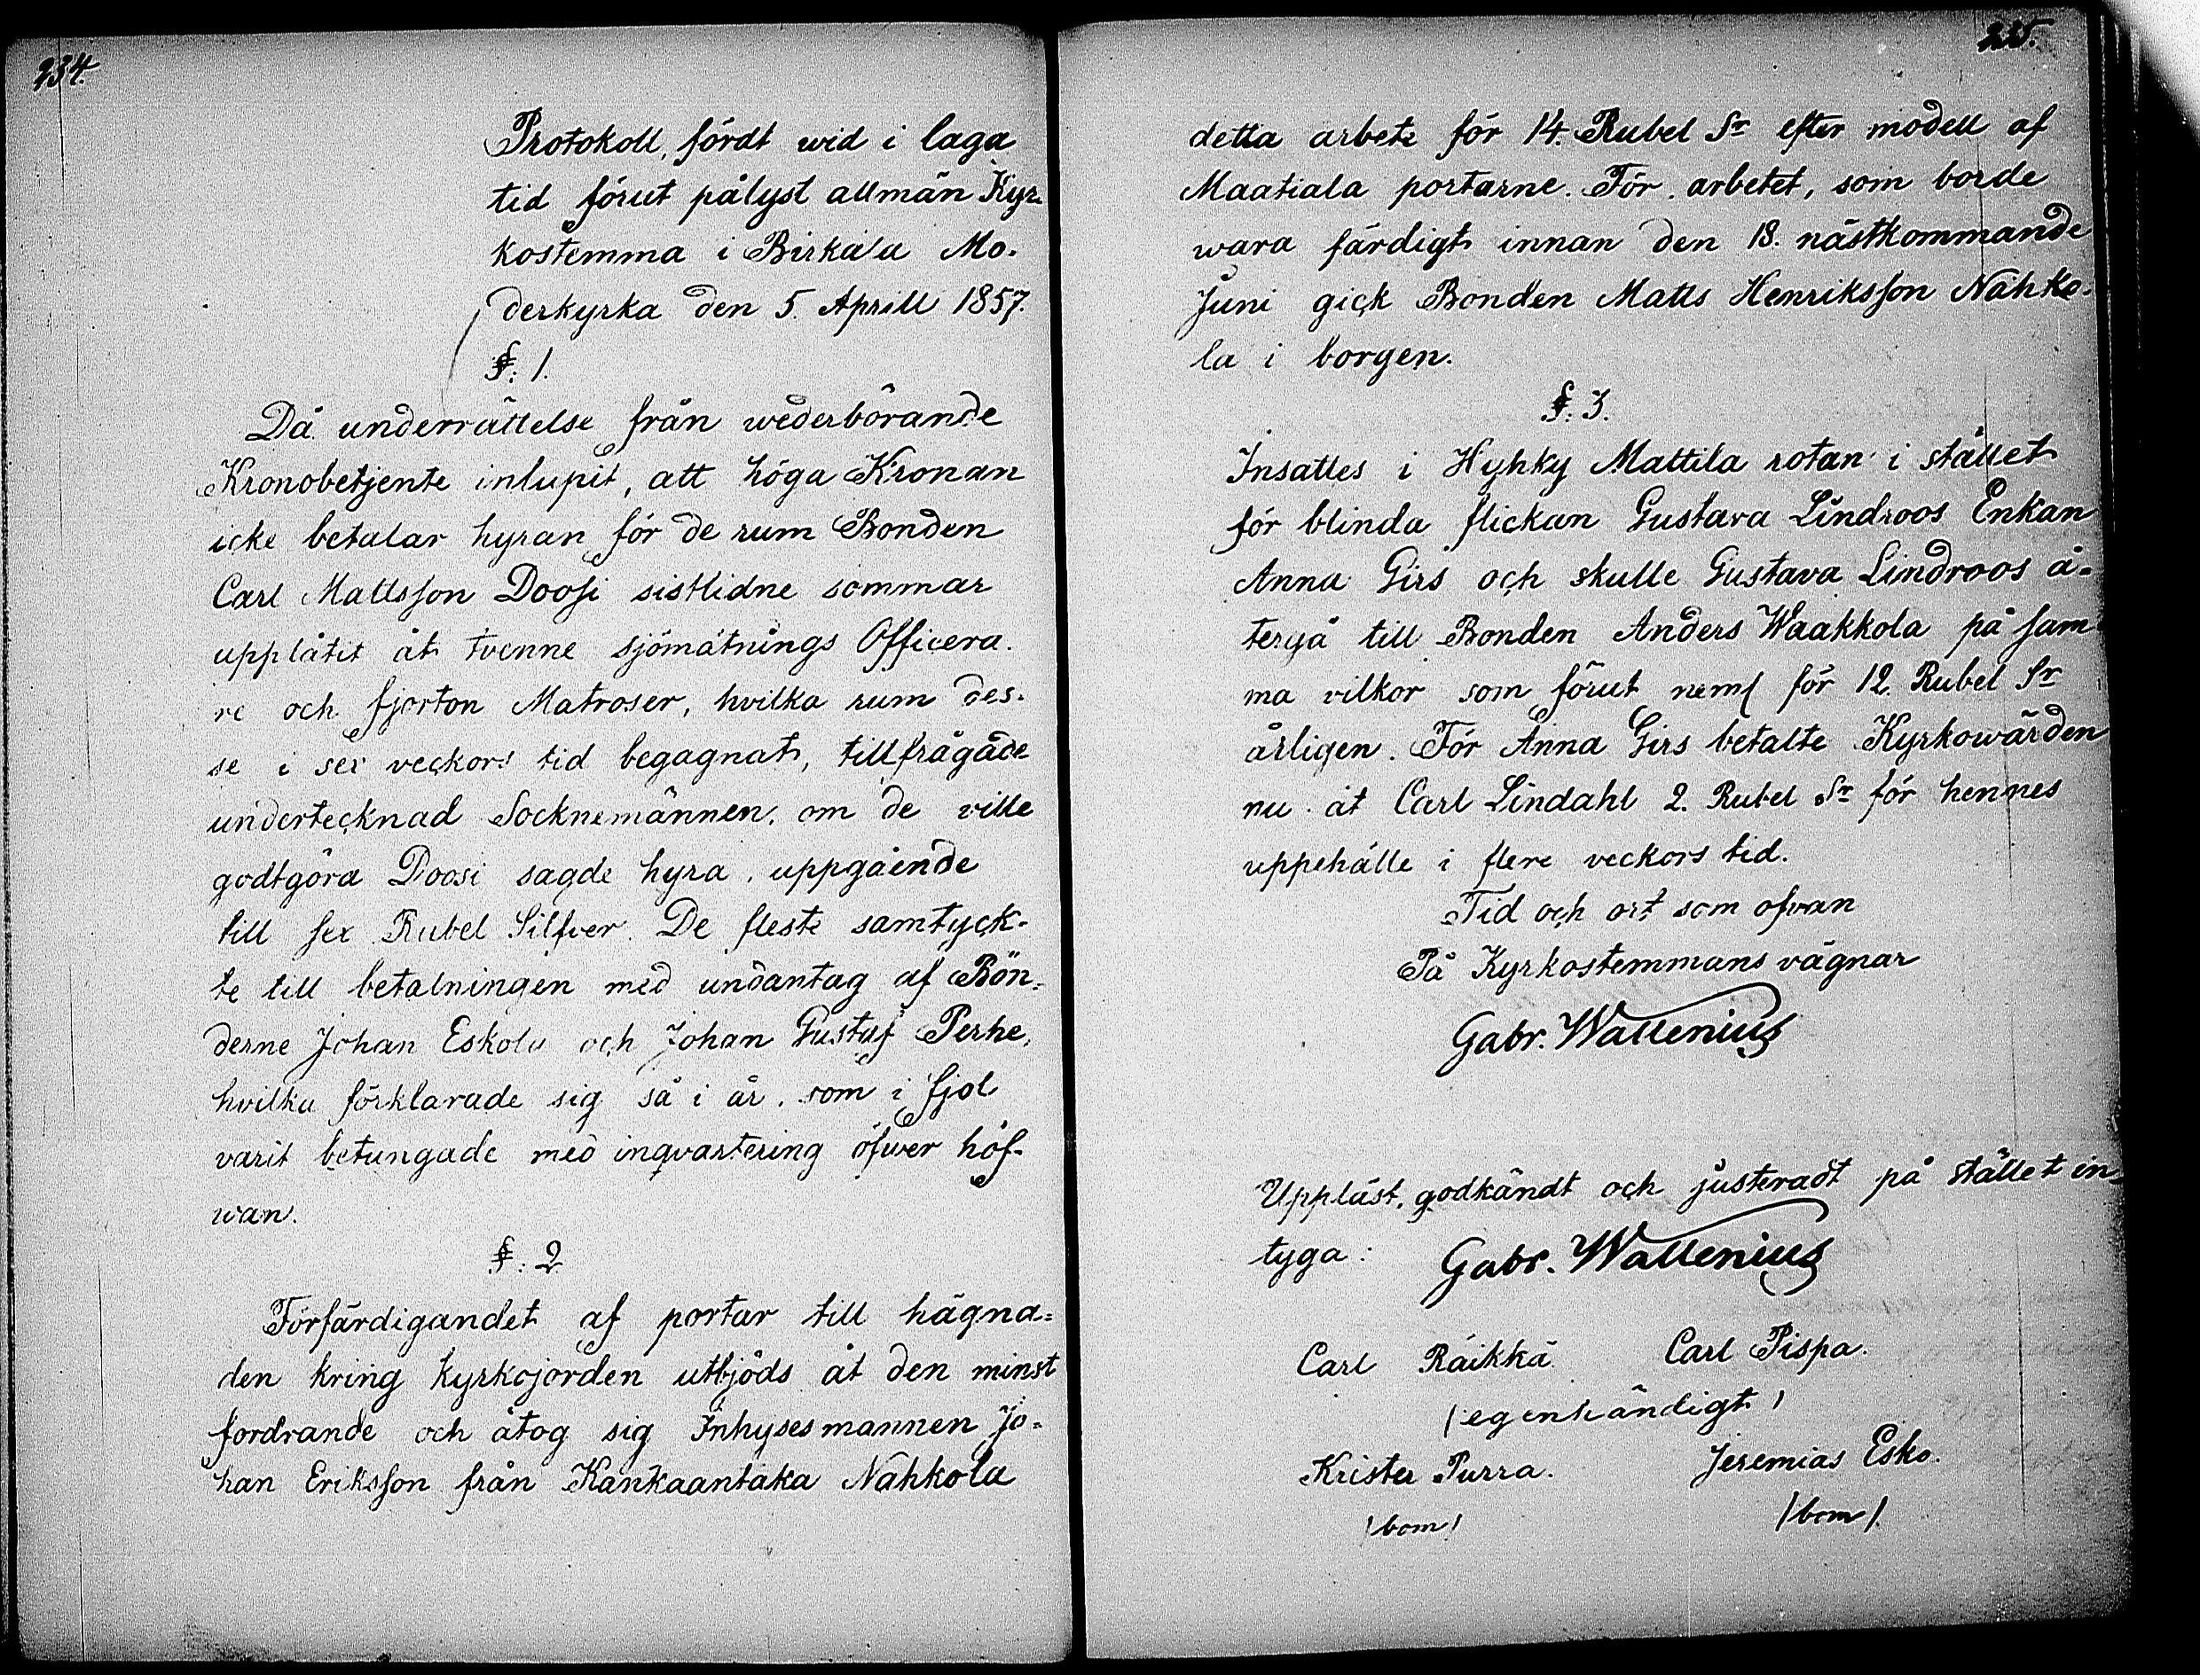 234.
Protokoll, fördt wid i laga
tid förut pålyst allmän Kyr-
kostemma i Birkala Mo-
derkyrka den 5. Aprill 1857.
§: 1.
Då underrättelse från wederbörande
Kronobetjente inlupit, att höga Kronan
icke betalar hyran för de rum Bonden
Carl Mattsson Doosi sistlidne sommar
upplåtit åt tvenne sjömätnings Officera-
re och fjorton Matroser, hvilka rum des-
se i sex veckors tid begagnat, tillfrågade
undertecknad Socknemännen, om de ville
godtgöra Doosi sagde hyra, uppgående
till sex Rubel Silfver. De fleste samtyck-
te till betalningen med undantag af Bön-
derne Johan Eskola och Johan Gustaf Perhe,
hvilka förklarade sig så i år, som i fjol
varit betungade med inqvartering öfwer höf-
wan.
§: 2
Förfärdigandet af portar till hägna-
den kring kyrkojorden utbjöds åt den minst
fordrande och åtog sig Inhysesmannen Jo-
han Eriksson från Kankaantaka Nahkola
225.
detta arbete för 14. Rubel Sr efter modell af
Maatiala portarne. För arbetet, som borde
wara färdigt innan den 18. nästkommande
Juni gick Bonden Matts Henriksson Nahko-
la i borgen.
§: 3.
Insattes i Hyhky Mattila rotan i stället
för blinda flickan Gustava Lindroos Enkan
Anna Girs och skulle Gustava Lindroos å-
tergå till Bonden Anders Waakkola på sam-
ma vilkor som förut neml för 12. Rubel Sr
årligen. För Anna Girs betalte Kyrkowärden
nu åt Carl Lindahl 2. Rubel Sr för hennes
uppehälle i flere veckors tid.
Tid och ort som ofvan
På Kyrkostemmans vägnar
Gabr. Wallenius
Uppläst, godkändt och justeradt på stället in-
tyga: Gabr. Wallenius
Carl Räikkä Carl Pispa.
/egenhändigt/
Krister Purra. Jeremias Esko.
/bom/ /bom/.